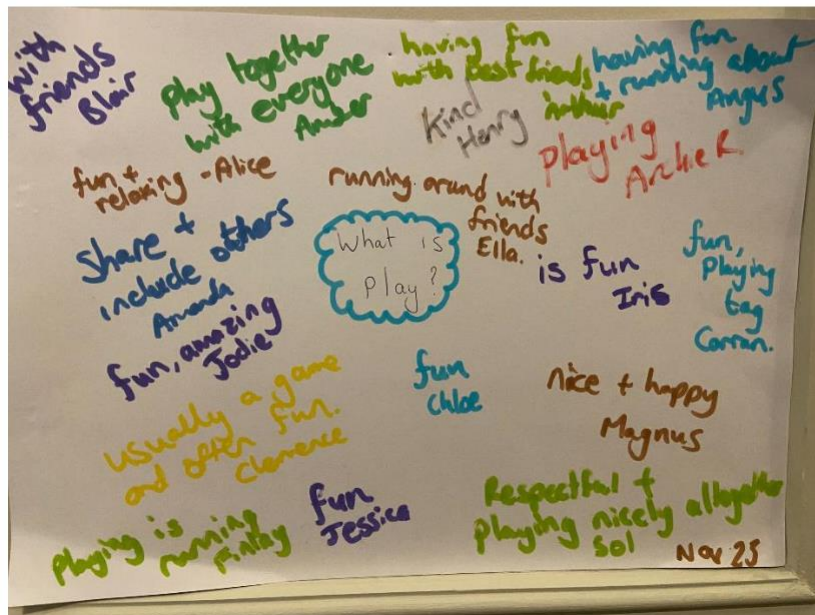 with
friends
Blair
play together
with everyone
Amber
having fun
with best friends
Arthur
having fun
+ running about
Angus
Kind
Henry
playing
Archie R.
fun +
relaxing - Alice
running around with
friends
Ella.
Share +
include others
Amanda
What is
play?
is fun
Iris
fun,
playing
tag
Carran.
fun, amazing
Jodie
fun
Chloe
nice + happy
Magnus
usually a game
and often fun.
Clemence
playing is
running
Finlay
fun
Jessica
Respectful +
playing nicely altogether
Sol
Nov 23